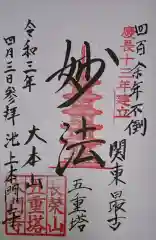 四百余年不倒
慶長十三年建立
関東最古
妙法
五重塔
大本山
池上本門寺
令和三年
四月三日参拝
長栄山
五重塔